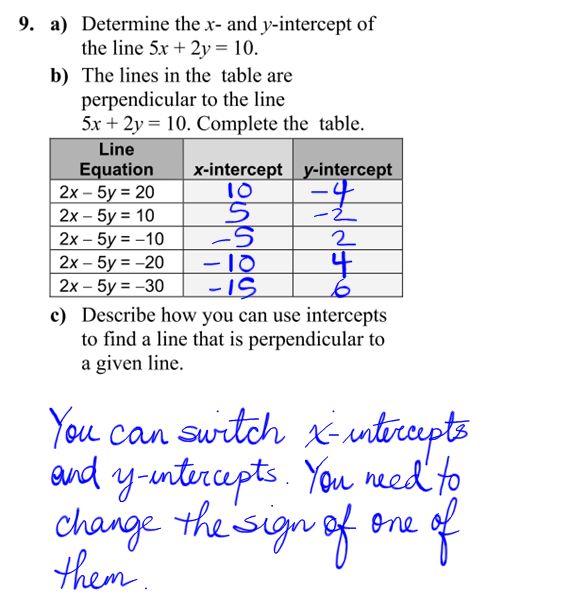 9. a) Determine the x- and y-intercept of
the line 5x + 2y = 10.
b) The lines in the table are
perpendicular to the line
5x + 2y = 10. Complete the table.
Line
Equation x-intercept y-intercept
2x – 5y = 20 10 -4
2x – 5y = 10 5 -2
2x – 5y = –10 -5 2
2x – 5y = –20 -10 4
2x – 5y = –30 -15 6
c) Describe how you can use intercepts
to find a line that is perpendicular to
a given line.
You can switch x-intercepts
and y-intercepts. You need to
change the sign of one of
them.